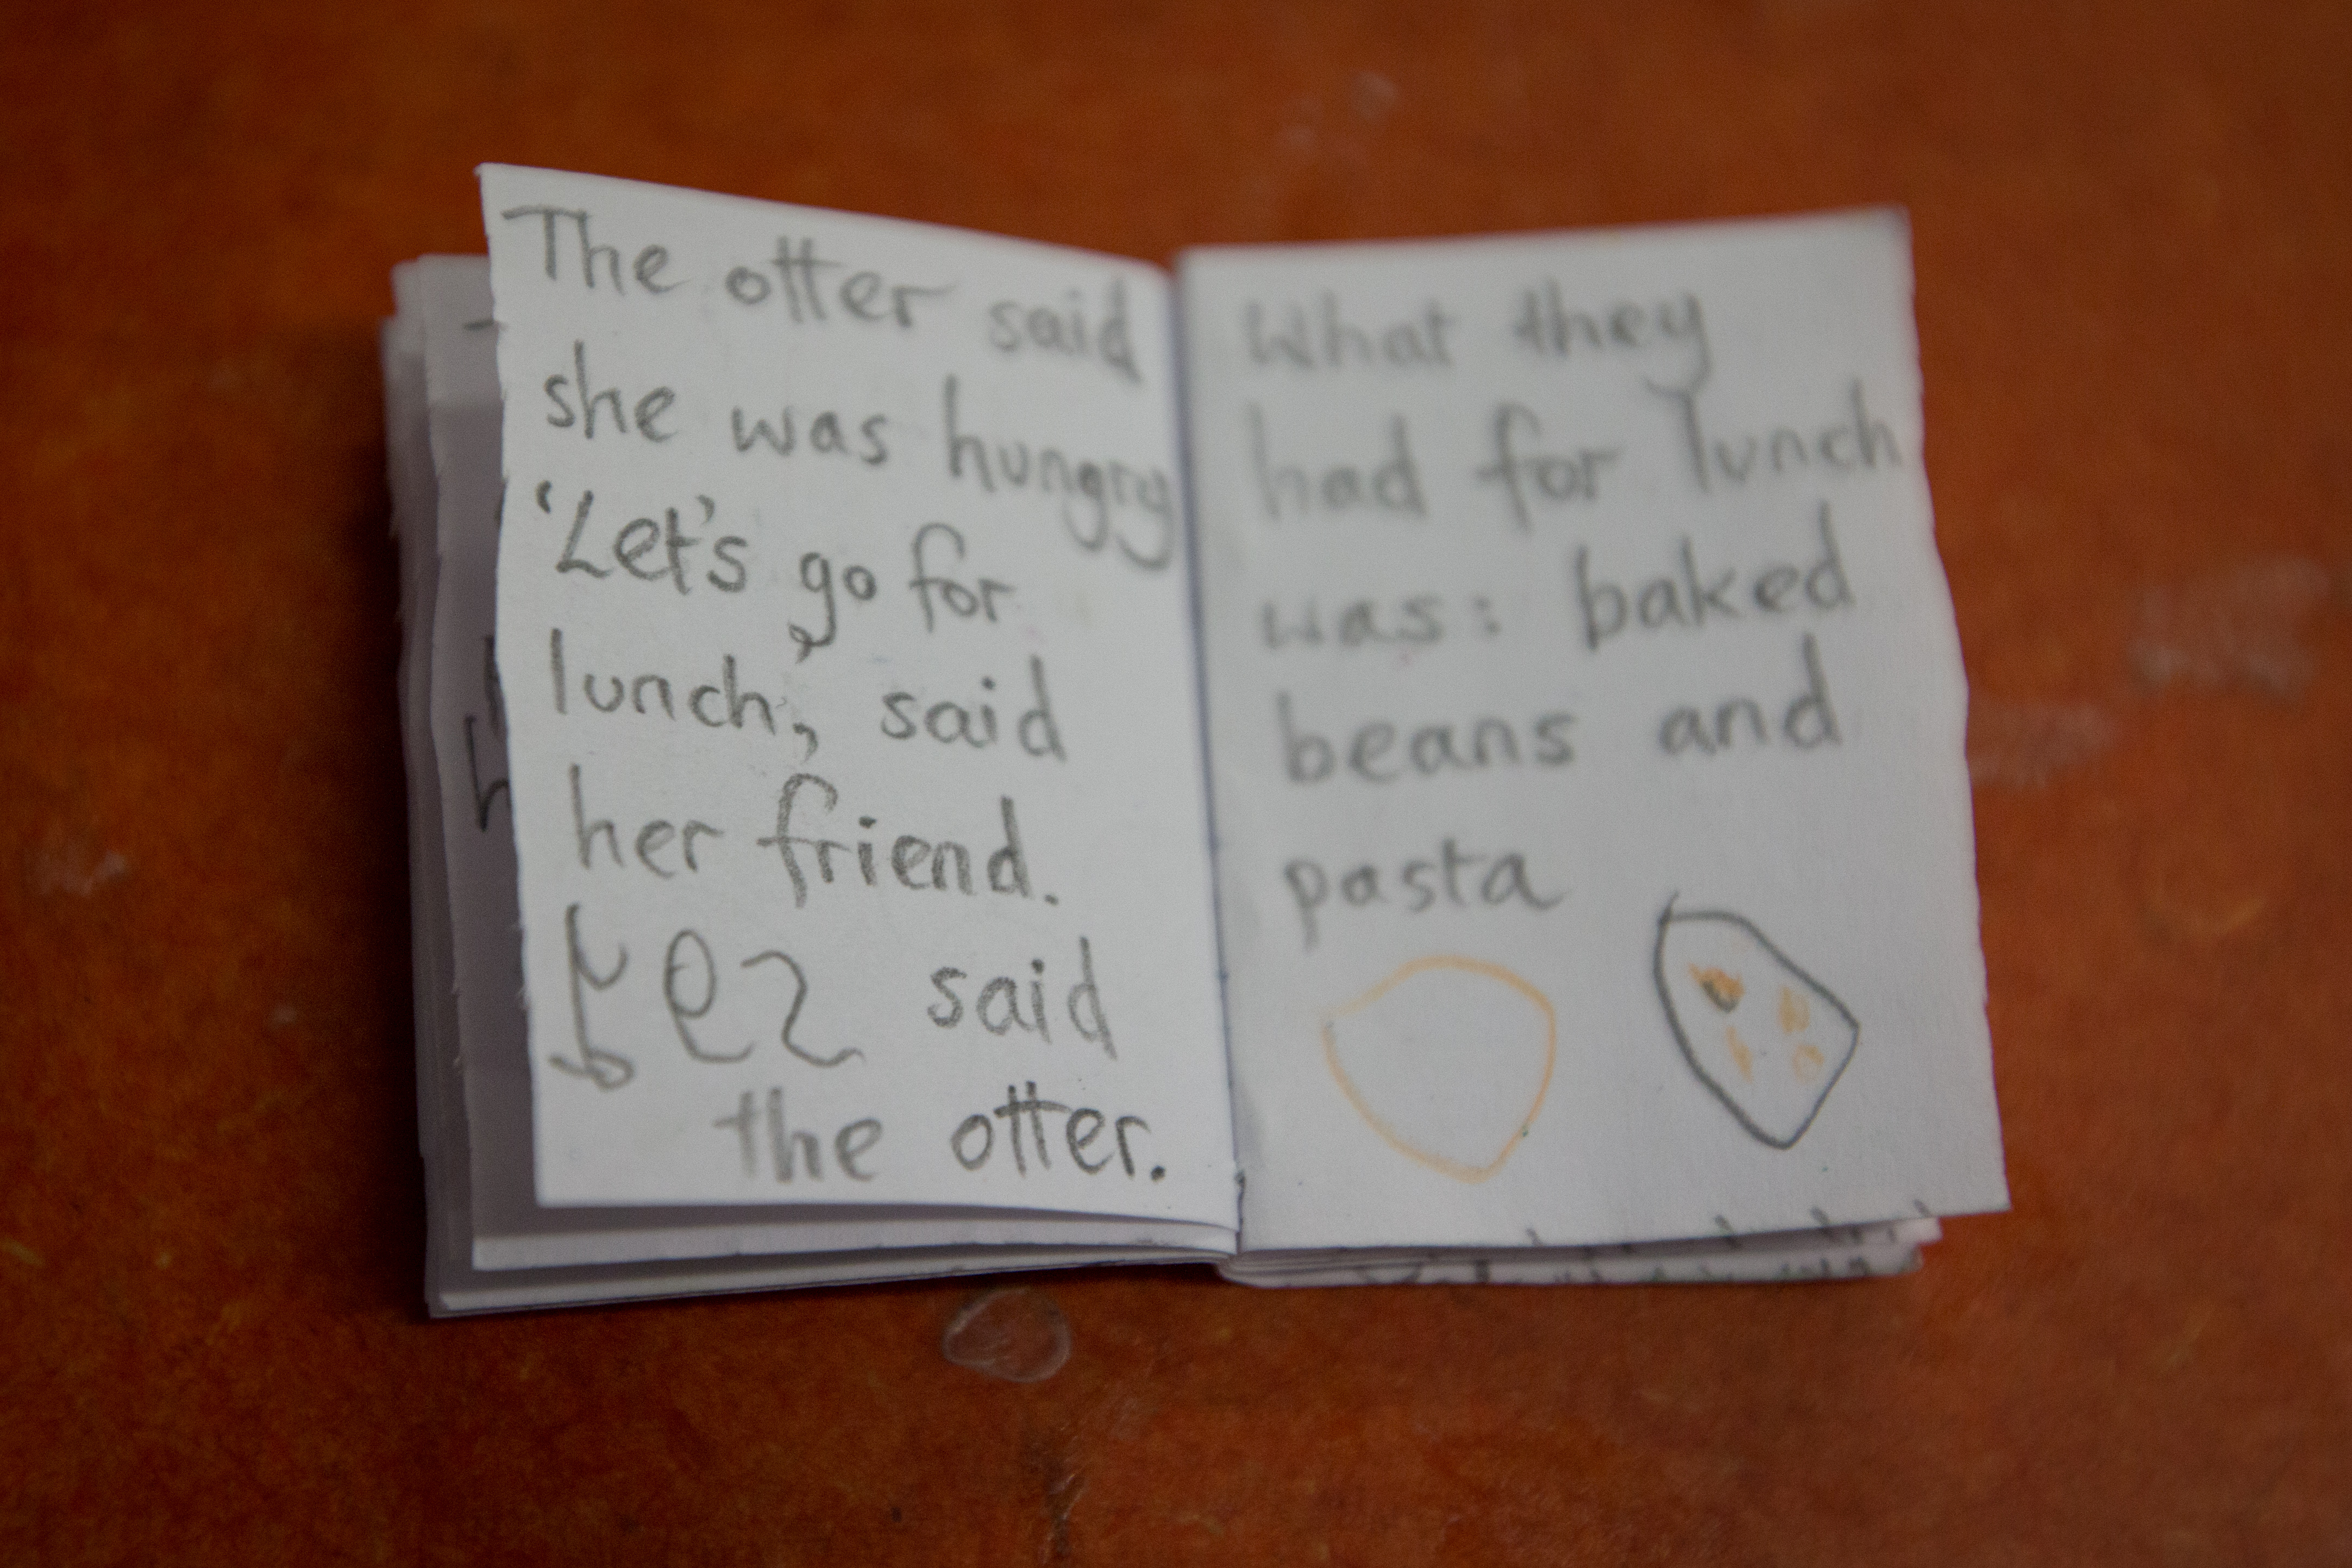 The otter said
she was hungry
‘Let's go for
lunch,’ said
her friend.
yes said
the otter.
What they
had for lunch
was: baked
beans and
pasta